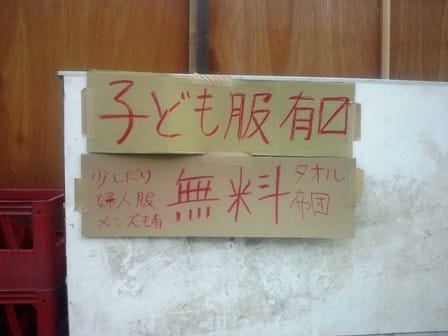 子ども服有〼
少しだけ
婦人服
メンズも有
無料
タオル
布団